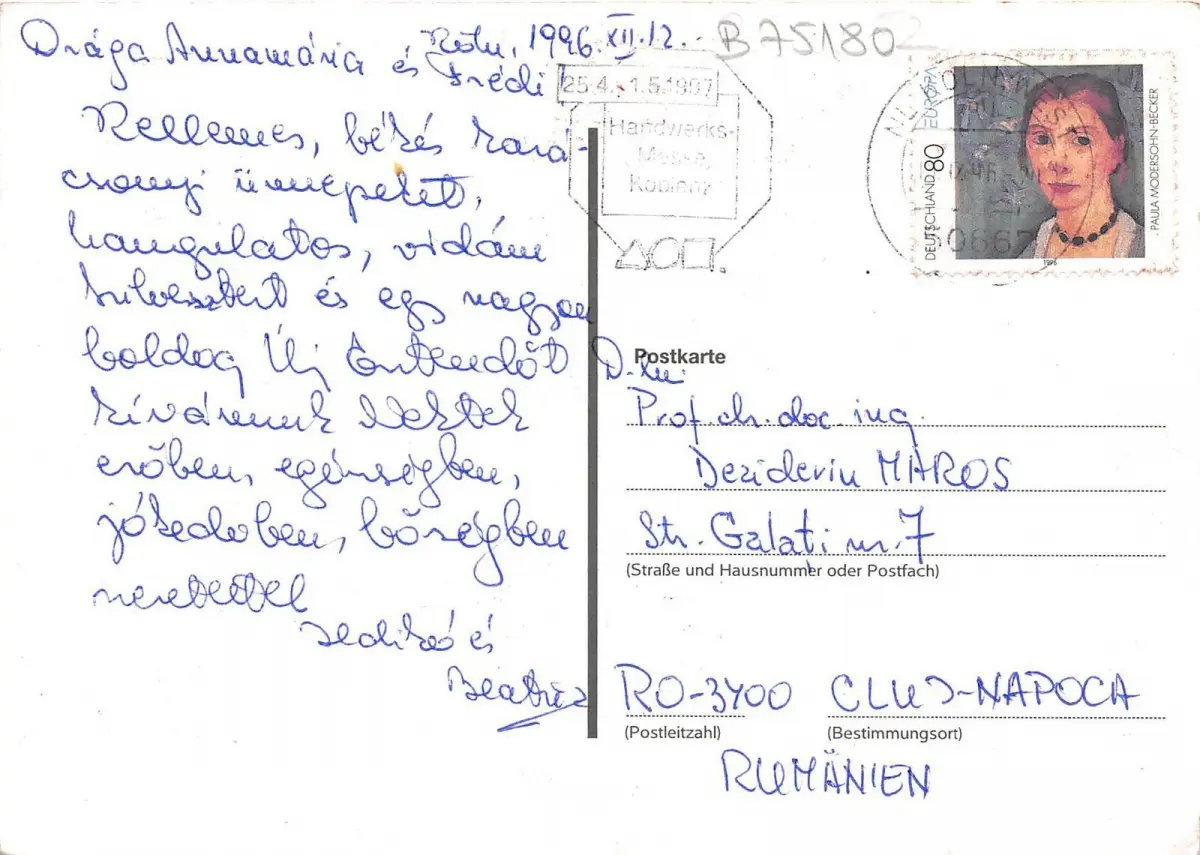 Köln, 1996.XII.12.
Drága Annamária és Frédi
Kellemes, békés kará-
csonyi ünnepeket,
hangulatos, vidám
szilvesztert és egy nagyon
boldog Új Esztendőt
kívánunk Nektek
erőben, egészségben,
jókedvben, bőségben
szeretettel
Ildikó és
Beatrix
B75180
25.4.-1.5.1997
Handwerks-
Messe,
Koblenz
EUROPA
DEUTSCHLAND 80
PAULA MODERSOHN-BECKER
1996
50667
Postkarte
D.lui.
Prof. dr. doc. ing.
Dezideriu MAROS
Str. Galați nr. 7
(Straße und Hausnummer oder Postfach)
RO-3400 CLUJ-NAPOCA
(Postleitzahl) (Bestimmungsort)
RUMÄNIEN